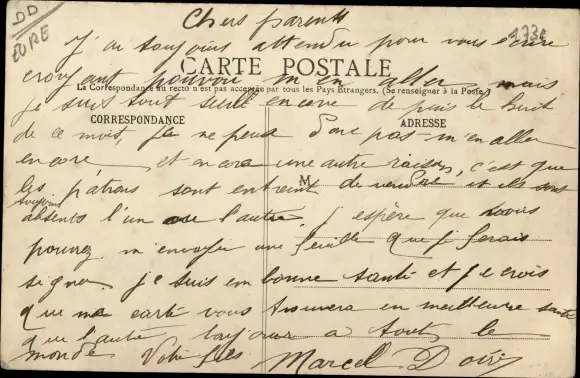 DD
EURE
Chers parents
J'ai toujours attendu pour vous écrire
CARTE POSTALE
croyant pouvoir m'en aller mais
La Correspondance au recto n'est pas acceptée par tous les Pays Etrangers. (Se renseigner à la Poste)
je suis tout seul encore depuis le huit
CORRESPONDANCE
ADRESSE
de ce mois, je ne peux donc pas m'en aller
encore et encore une autre raison, c'est que
M
les patrons sont en de vendre et ils sont
toujours
absents l'un ou l'autre. j'espère que vous
pourrez m'envoyer une feuille que je ferais
signer je suis en bonne santé et je crois
que ma carte vous trouvera en meilleure santé
que l'autre bonjour a tout le
monde Votre fils Marcel